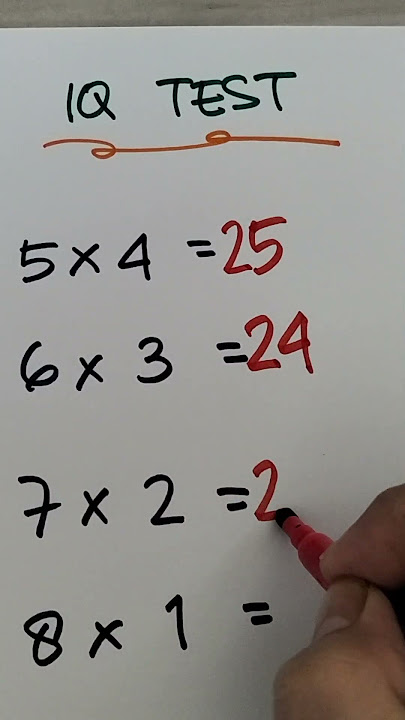 IQ TEST
5 x 4 = 25
6 x 3 = 24
7 x 2 = 2
8 x 1 =